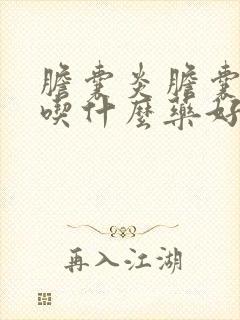 膽囊炎膽囊
喫什麼藥好
再入江湖